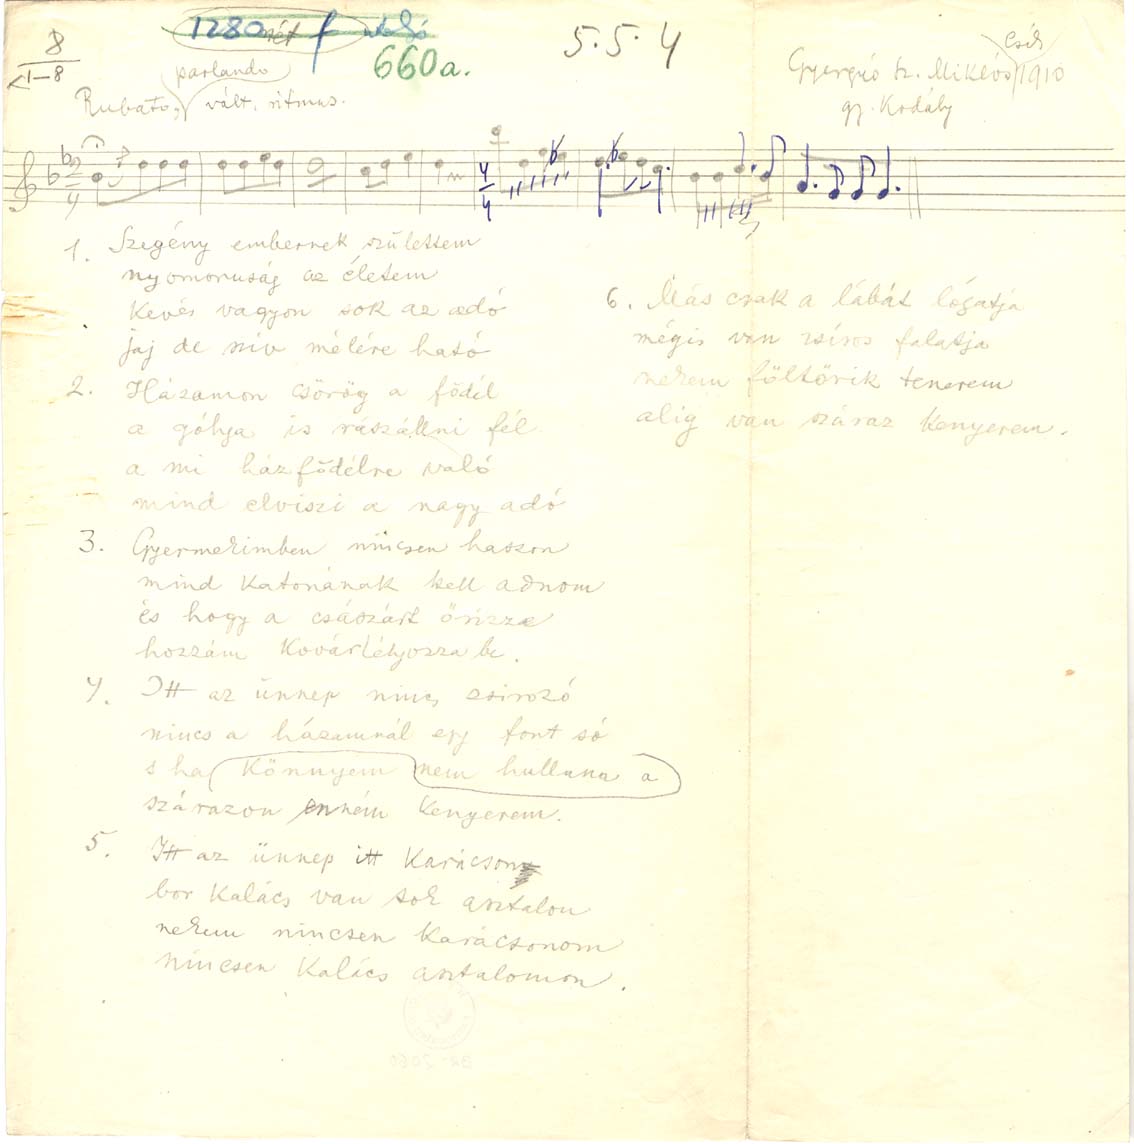 1280
660a.
5. 5. 4
8
1–8
parlando
Rubato, vált. ritmus.
Csík
Gyergyó sz. Miklós 1910
gy. Kodály
2
4
4
4
1. Szegény embernek születtem
nyomoruság az életem
Kevés vagyon sok az adó
jaj de szív mélére ható
2. Házamon csörög a födél
a gólya is rászállni fél
a mi házfödélre való
mind elviszi a nagy adó
3. Gyermekimben nincsen hasson
mind Katonának kell adnom
és hogy a császárt őrizze
hozzám be.
4. Itt az ünnep nincs zsirozó
nincs a házamnál egy font só
s ha Könnyem nem hullana a
szárazon enném Kenyerem.
5. Itt az ünnep itt Karácson
bor Kalács van sok asztalon
nekem nincsen Karácsonom
nincsen Kalács asztalomon.
6. Más csak a lábát lógatja
mégis van zsíros falatja
nekem föltörik tenerem
alig van száraz Kenyerem.